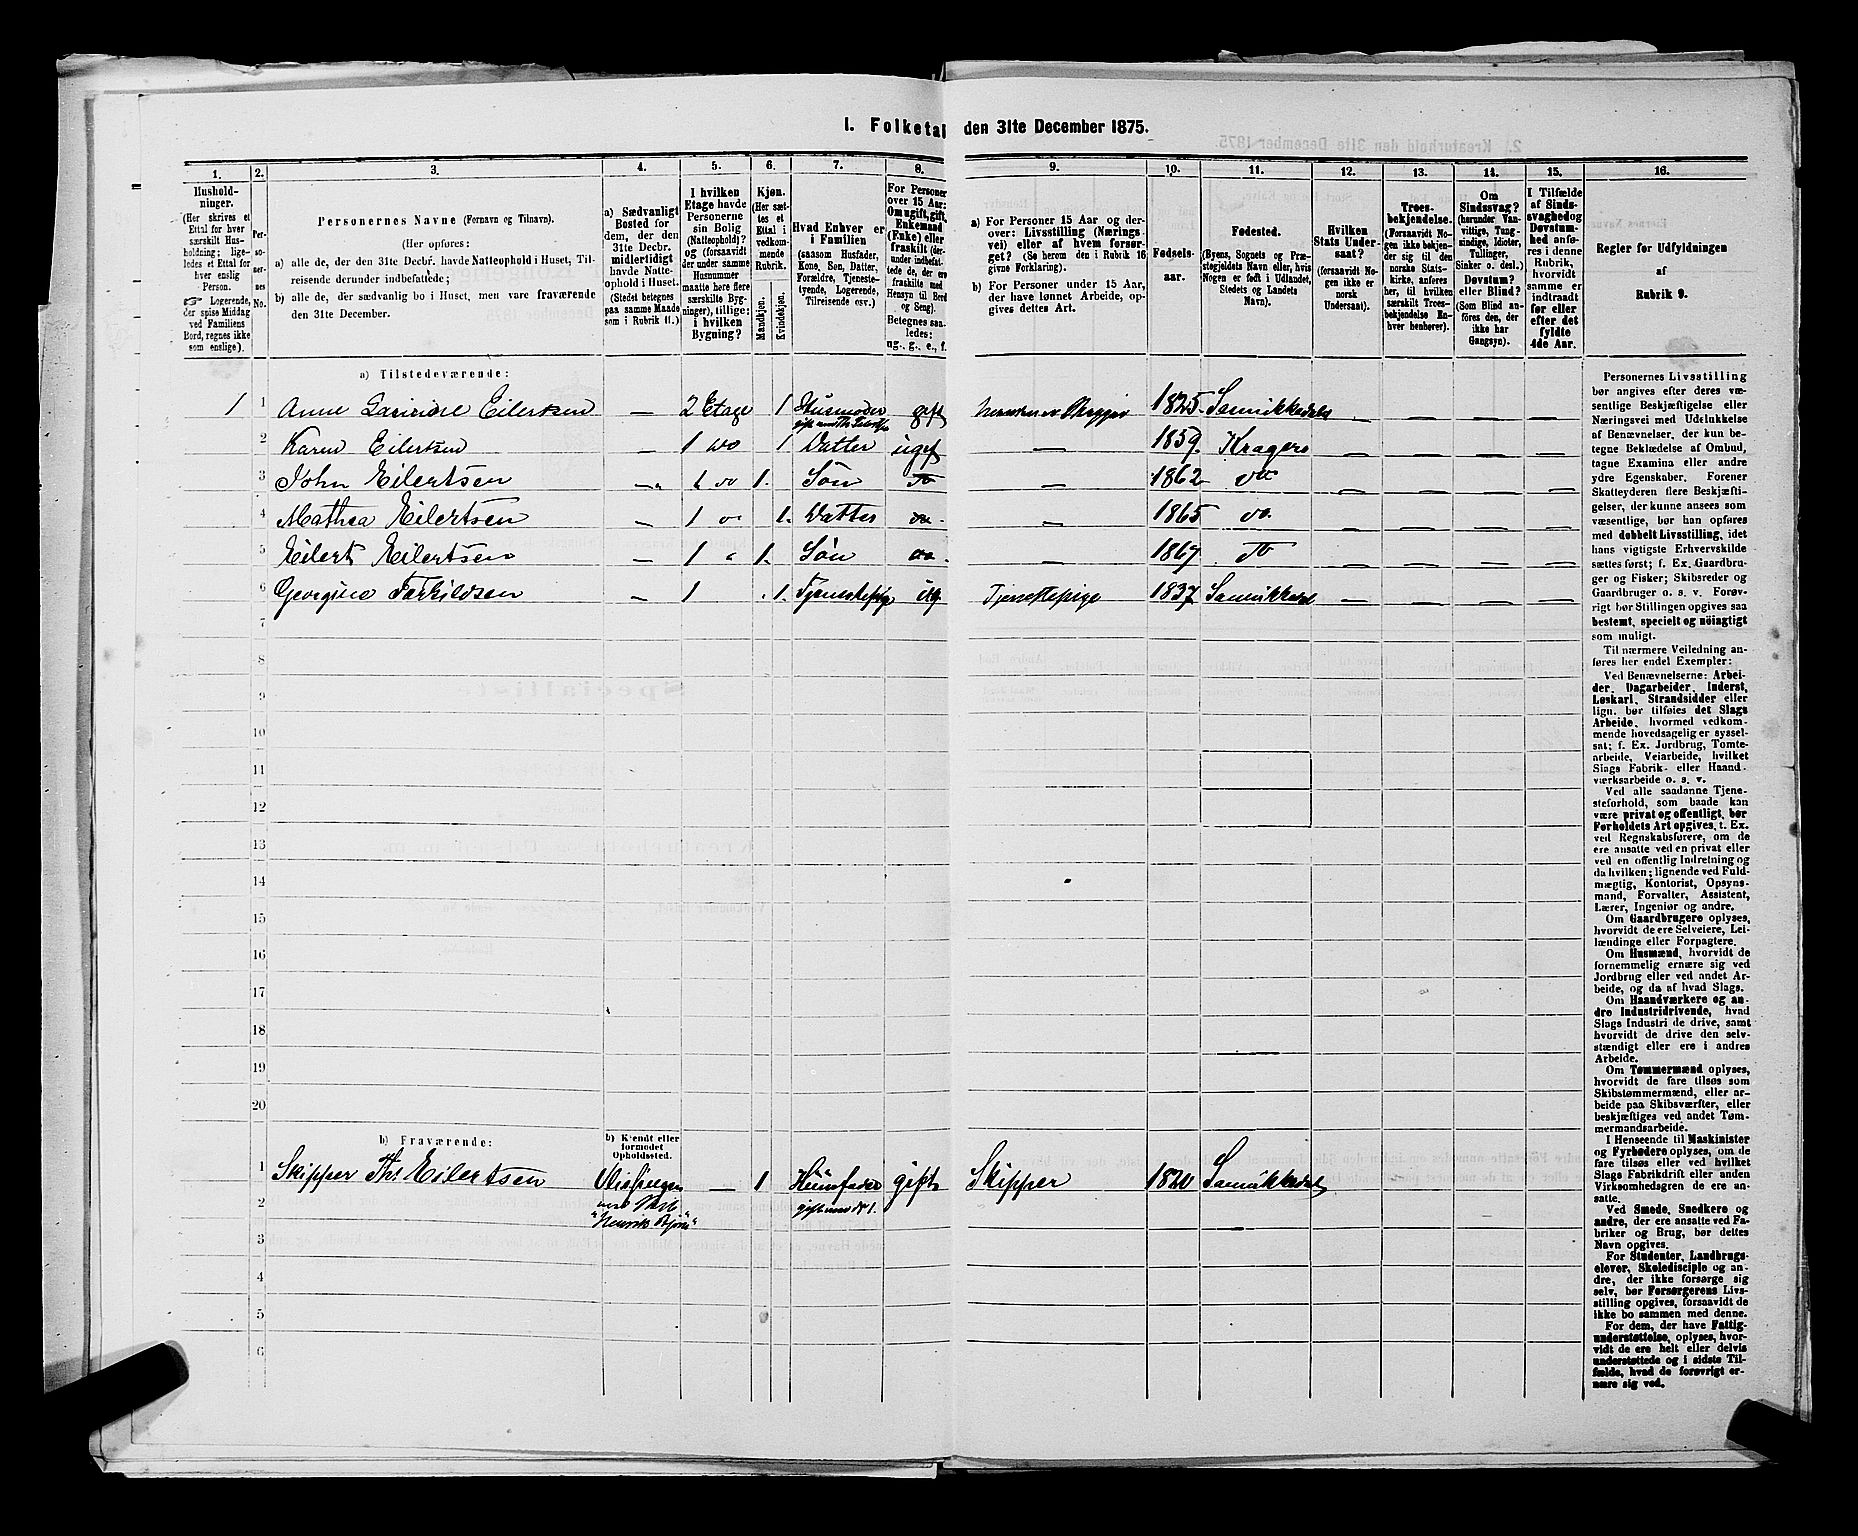 I. Folketal den 31te December 1875.
1.
Hushold-
ninger.
(Her skrives et
Ettal for hver
særskilt Hus-
holdning; lige-
ledes et Ettal for
hver enslig
Person.
☞ Logerende,
der spise Middag
ved Familiens
Bord, regnes ikke
som enslige).
2.
Per-
so-
ner-
nes
No.
3.
Personernes Navne (Fornavn og Tilnavn).
(Her opføres:
a) alle de, der den 31te Decbr. havde Natteophold i Huset, Til-
reisende derunder indbefattede;
b) alle de, der sædvanlig bo i Huset, men vare fraværende
den 31te December.
4.
a) Sædvanligt
Bosted for
dem, der den
31te Decbr.
midlertidigt
havde Natte-
ophold i Huset.
(Stedet betegnes
paa samme Maade
som i Rubrik 11.)
5.
I hvilken
Etage havde
Personerne
sin Bolig
(Natteophold)?
og (forsaavidt
der under samme
Husnummer
maatte høre flere
særskilte Byg-
ninger), tillige:
i hvilken
Bygning?
6.
Kjøn.
(Her sæt-
tes et
Ettal i
vedkom-
mende
Rubrik.
Mandkjøn.
Kvindekjøn.
7.
Hvad Enhver er
i Familien
(saasom Husfader,
Kone, Søn, Datter,
Forældre, Tjeneste-
tyende, Logerende,
Tilreisende osv.)
8.
For Personer
over 15 Aar:
Om ugift, gift,
Enkemand
(Enke) eller
fraskilt (der-
under indbefat-
tede de, der ere
fraskilte med
Hensyn til Bord
og Seng).
Betegnes saa-
ledes:
ug., g., e., f.
9.
a) For Personer 15 Aar og der-
over: Livsstilling (Nærings-
vei) eller af hvem forsør-
get? (Se herom den i Rubrik 16
givne Forklaring).
b) For Personer under 15 Aar,
der have lønnet Arbeide, op-
gives dettes Art.
10.
Fødsels-
aar.
11.
Fødested.
(Byens, Sognets og Præ-
stegjeldets Navn eller, hvis
Nogen er født i Udlandet,
Stedets og Landets
Navn).
12.
Hvilken
Stats Under-
saat?
(forsaavidt No-
gen ikke er
norsk
Undersaat).
13.
Troes-
bekjendelse.
(Forsaavidt No-
gen ikke bekjen-
der sig til den
norske Stats-
kirke, anføres
her, til hvilken
særskilt Troes-
bekjendelse En-
hver henhører).
14.
Om
Sindssvag?
(herunder Van-
vittige, Tung-
sindige, Idioter,
Tullinger,
Sinker o. desl.)
Døvstum?
eller Blind?
(Som Blind an-
føres den, der
ikke har
Gangsyn).
15.
I Tilfælde
af Sinds-
svaghed og
Døvstum-
hed anfø-
res i denne
Rubrik,
hvorvidt
samme er
indtraadt
før eller
efter det
fyldte
4de Aar.
16.
Regler for Udfyldningen
af
Rubrik 9.
a) Tilstedeværende:
1 1 Anne Eilertsen — 2 Etage 1 Husmoder gift 1825 Sannikkedal — — — —
2 Karen Eilertsen — 1 do 1 Datter ugift — 1859. Kragerø — — — —
3 John Eilertsen — 1 do 1. Søn — 1862 do — — — —
4 Mathea Eilertsen — 1 1. Datter do — 1865 do. — — — —
5 Eilert Eilertsen — 1 " 1. Søn do — 1867 do — — — —
6 Georgine Terkildsen — 1 1. Tjenestepige ug Tjenestepige 1837 Sannikkedal — — — —
7
8
9
10
11
12
13
14
15
16
17
18
19
20
b) Fraværende:
b) Kjendt eller
formodet
Opholdssted.
1 Skipper Ths Eilertsen — 1 Huusfader gift Skipper 1820 Sannikkedal
2 gift med No 1.
"Henrik Bjørn"
3
4
5
6
Personernes Livsstilling
bør angives efter deres væ-
sentlige Beskjæftigelse eller
Næringsvei med Udelukkelse
af Benævnelser, der kun be-
tegne Beklædelse af Ombud,
tagne Examina eller andre
ydre Egenskaber. Forener
Skatteyderen flere Beskjæfti-
gelser, der kunne ansees som
væsentlige, bør han opføres
med dobbelt Livsstilling, idet
hans vigtigste Erhvervskilde
sættes først; f. Ex. Gaardbru-
ger og Fisker; Skibsreder og
Gaardbruger o. s. v. Forøv-
rigt bør Stillingen opgives saa
bestemt, specielt og nøiagtigt
som muligt.
Til nærmere Veiledning an-
føres her endel Exempler:
Ved Benævnelserne: Arbei-
der, Dagarbeider, Inderst,
Løskarl, Strandsidder eller
lign. bør tilføies det Slags
Arbeide, hvormed vedkom-
mende hovedsagelig er syssel-
sat; f. Ex. Jordbrug, Tomte-
arbeide, Veiarbeide, hvilket
Slags Fabrik- eller Haand-
værksarbeide o. s. v.
Ved alle saadanne Tjene-
steforhold, som baade kan
være privat og offentligt, bør
Forholdets Art opgives, t. Ex.
ved Regnskabsførere, om de
ere ansatte ved en privat eller
ved en offentlig Indretning og
da hvilken; lignende ved Fuld-
mægtig, Kontorist, Opsyns-
mand, Forvalter, Assistent,
Lærer, Ingeniør og andre.
Om Gaardbrugere oplyses,
hvorvidt de ere Selveiere, Lei-
lændinge eller Forpagtere.
Om Husmænd, hvorvidt de
fornemmelig ernære sig ved
Jordbrug eller ved andet Ar-
beide, og da af hvad Slags.
Om Haandværkere og an-
dre Industridrivende, hvad
Slags Industri de drive, samt
hvorvidt de drive den selv-
stændigt eller ere i andres
Arbeide.
Om Tømmermænd oplyses,
hvorvidt de fare tilsøs som
Skibstømmermænd, eller ar-
beide paa Skibsværfter, eller
beskjæftiges ved andet Tøm-
mermandsarbeide.
I Henseende til Maskinister
og Fyrbødere oplyses, om de
fare tilsøs eller ved hvilket
Slags Fabrikdrift eller anden
Virksomhedsgren de ere an-
satte.
Ved Smede, Snedkere og
andre, der ere ansatte ved Fa-
briker og Brug, bør dettes
Navn opgives.
For Studenter, Landbrugs-
elever, Skoledisciple og an-
dre, der ikke forsørge sig
selv, bør Forsørgerens Livs-
stilling opgives, forsaavidt de
ikke bo sammen med denne.
For dem, der have Fattig-
understøttelse, oplyses, hvor-
vidt de ere helt eller delvis
understøttede og i sidste Til-
fælde, hvad de forøvrigt er-
nære sig ved.